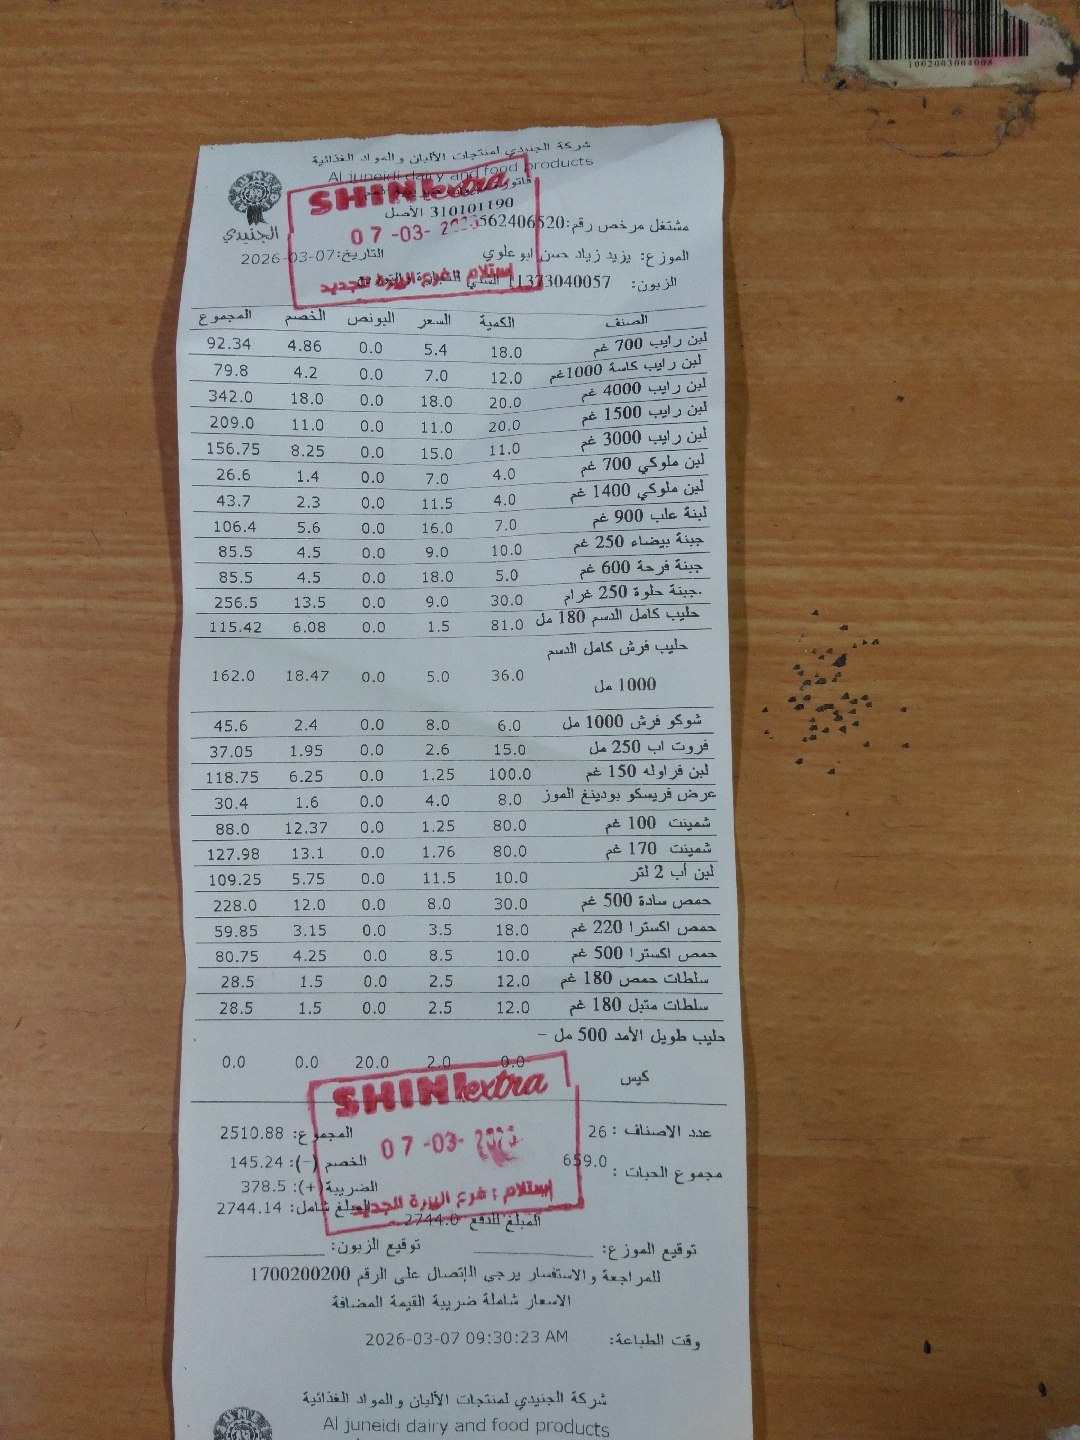 1002003004008
شركة الجنيدي لمنتجات الألبان والمواد الغذائية
Al juneidi dairy and food products
الجنيدي
SHINI extra
07-03-
استلام : فرع البيرة الجديد
310101190 الأصل
مشتغل مرخص رقم:562406520
الموزع: يزيد زياد حسن ابو علوي
التاريخ:2026-03-07
الزبون: 11373040057
الصنف الكمية السعر البونص الخصم المجموع
لبن رايب 700 غم 18.0 5.4 0.0 4.86 92.34
لبن رايب كاسة 1000غم 12.0 7.0 0.0 4.2 79.8
لبن رايب 4000 غم 20.0 18.0 0.0 18.0 342.0
لبن رايب 1500 غم 20.0 11.0 0.0 11.0 209.0
لبن رايب 3000 غم 11.0 15.0 0.0 8.25 156.75
لبن ملوكي 700 غم 4.0 7.0 0.0 1.4 26.6
لبن ملوكي 1400 غم 4.0 11.5 0.0 2.3 43.7
لبنة علب 900 غم 7.0 16.0 0.0 5.6 106.4
جبنة بيضاء 250 غم 10.0 9.0 0.0 4.5 85.5
جبنة فرحة 600 غم 5.0 18.0 0.0 4.5 85.5
.جبنة حلوة 250 غرام 30.0 9.0 0.0 13.5 256.5
حليب كامل الدسم 180 مل 81.0 1.5 0.0 6.08 115.42
حليب فرش كامل الدسم
1000 مل 36.0 5.0 0.0 18.47 162.0
شوكو فرش 1000 مل 6.0 8.0 0.0 2.4 45.6
فروت اب 250 مل 15.0 2.6 0.0 1.95 37.05
لبن فراوله 150 غم 100.0 1.25 0.0 6.25 118.75
عرض فريسكو بودينغ الموز 8.0 4.0 0.0 1.6 30.4
شمينت 100 غم 80.0 1.25 0.0 12.37 88.0
شمينت 170 غم 80.0 1.76 0.0 13.1 127.98
لبن أب 2 لتر 10.0 11.5 0.0 5.75 109.25
حمص سادة 500 غم 30.0 8.0 0.0 12.0 228.0
حمص اكسترا 220 غم 18.0 3.5 0.0 3.15 59.85
حمص اكسترا 500 غم 10.0 8.5 0.0 4.25 80.75
سلطات حمص 180 غم 12.0 2.5 0.0 1.5 28.5
سلطات متبل 180 غم 12.0 2.5 0.0 1.5 28.5
حليب طويل الأمد 500 مل -
كيس 0.0 2.0 20.0 0.0 0.0
SHINI extra
07-03-
استلام : فرع البيرة الجديد
عدد الاصناف : 26
المجموع: 2510.88
مجموع الحبات : 659.0
الخصم (-): 145.24
الضريبة(+): 378.5
المبلغ شامل: 2744.14
المبلغ للدفع 2744.0
توقيع الموزع:
توقيع الزبون:
للمراجعة والاستفسار يرجى الإتصال على الرقم 1700200200
الاسعار شاملة ضريبة القيمة المضافة
وقت الطباعة: 2026-03-07 09:30:23 AM
شركة الجنيدي لمنتجات الألبان والمواد الغذائية
Al juneidi dairy and food products